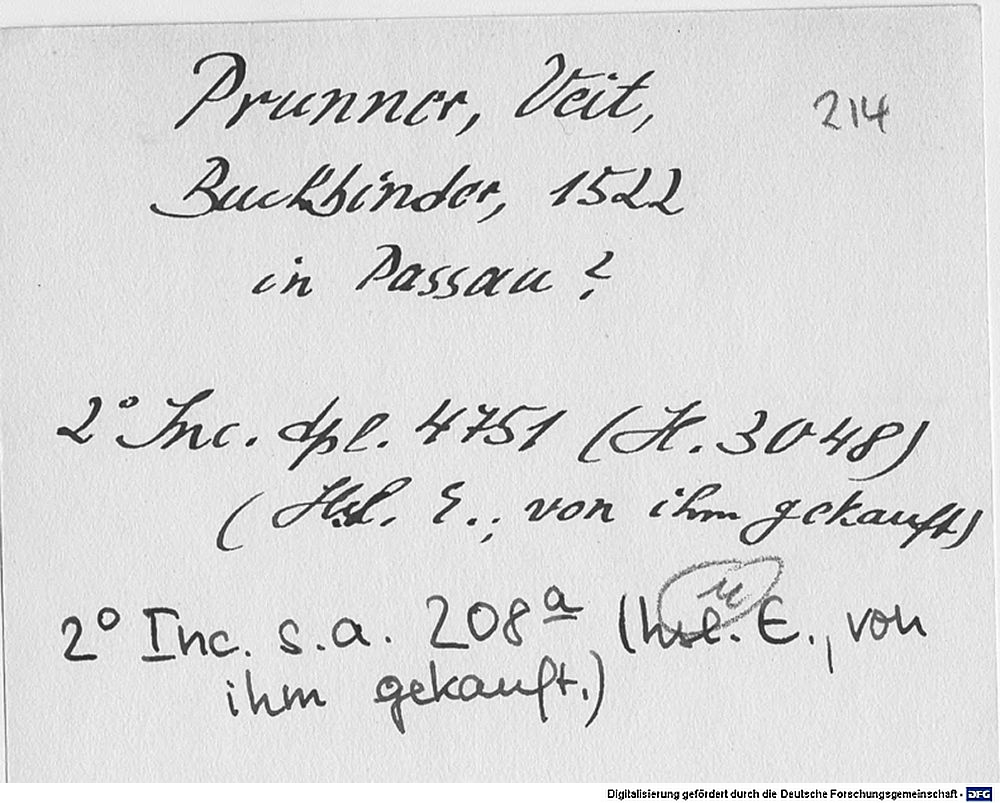 Prunner, Veit,
214
Buchbinder, 1522
in Passau?
2° Inc. dpl. 4751 (H. 3048)
(Hsl. E., von ihm gekauft)
2° Inc. s.a. 208a (hsl. E., von
ihm gekauft.)
Digitalisierung gefördert durch die Deutsche Forschungsgemeinschaft - DFG